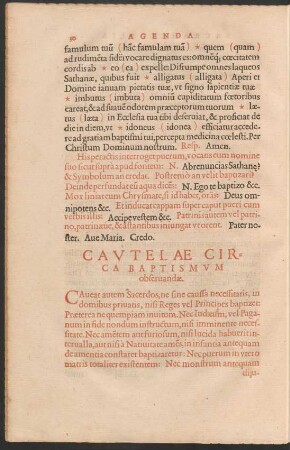 90 AGENDA
famulum tuū (hāc famulam tuā) * quem (quam)
ad rudimēta fidei vocare dignatus es: omnēq; cœcitatem
cordis ab * eo (ea) expelle: Disrumpe omnes laqueos
Sathanæ, quibus fuit * alligatus (alligata) Aperi ei
Domine ianuam pietatis tuæ, vt signo sapientiæ tuæ
* imbutus (imbuta) omniū cupiditatum fœtoribus
careat, & ad suauē odorem præceptorum tuorum * læ-
tus (læta) in Ecclesia tua tibi deseruiat, & proficiat de
die in diem, vt * idoneus (idonea) efficiatur accede-
re ad gratiam baptismi tui, percepta medicina cœlesti. Per
Christum Dominum nostrum. Resp. Amen.
His peractis interroget puerum, vocans eum nomine
suo sicut suprà apud fontem: N. Abrenuncias Sathanę?
& Symbolum ac credas. Postremò an velit baptizari?
Deinde perfundat eū aqua dicēs: N. Ego te baptizo &c.
Mox liniat eum Chrysmate, si id habet, orās Deus om-
nipotens &c. Et induēdo cappam super caput pueri cum
verbis illis: Accipe vestem &c. Patrinū autem vel patri-
no, patrinæue, & astantibus iniungat vt orent. Pater no-
ster. Aue Maria. Credo.
CAVTELAE CIR-
CA BAPTISMVM
obseruandæ.
Caueat autem Sacerdos, ne sine caussa necessitatis, in
domibus priuatis, nisi Reges vel Principes baptizet.
Præterea ne quempiam inuitum. Nec Iudæum, vel Paga-
num in fide nondum instructum, nisi imminente necessi-
tate. Nec amētem aut furiosum, nisi lucida habuerit in-
terualla, aut nisi à Natiuitate amēs, in infantia antequam
de amentia constaret baptizaretur: Nec puerum in vtero
matris totaliter existentem: Nec monstrum antequam